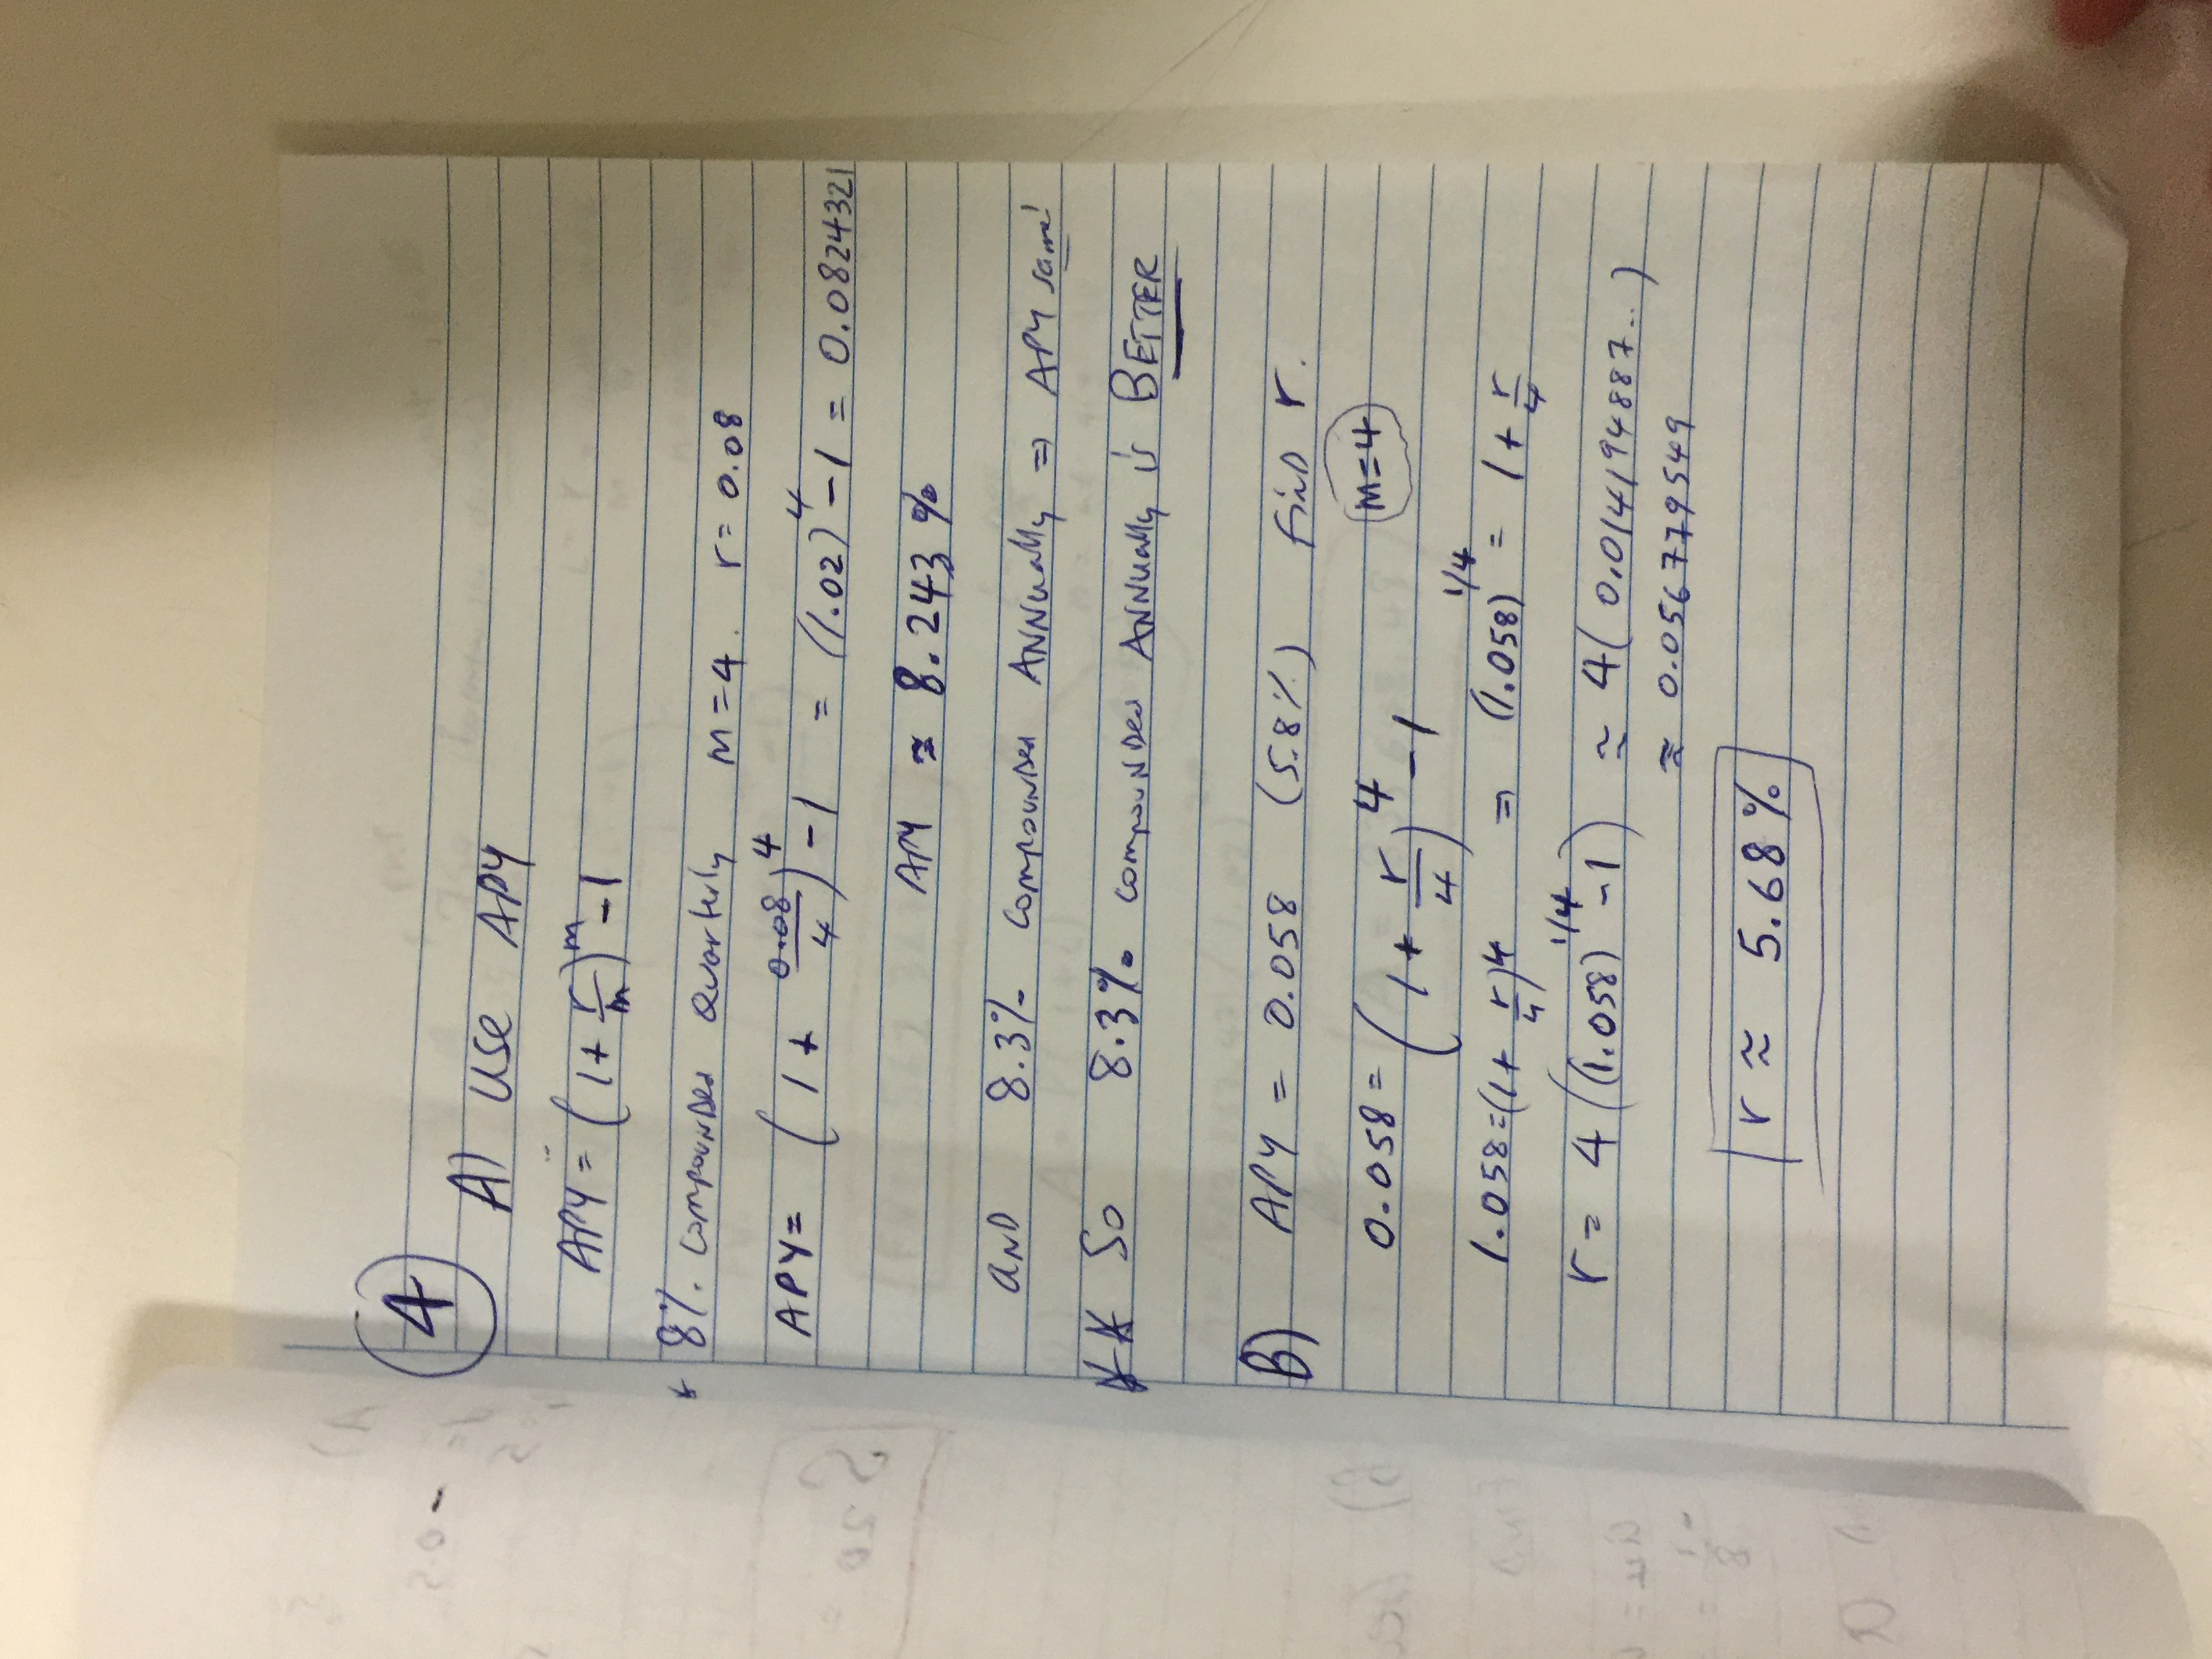 4
A) Use APY
APY = (1 + r/m)^m - 1
* 8% compounded quarterly m = 4. r = 0.08
APY = (1 + 0.08/4)^4 - 1 = (1.02)^4 - 1 = 0.0824321
APY ≈ 8.243%
and 8.3% compounded annually ⇒ APY same!
** So 8.3% compounded annually is BETTER
B) APY = 0.058 (5.8%) find r.
0.058 = (1 + r/4)^4 - 1 m=4
1.058 = (1 + r/4)^4 ⇒ (1.058)^1/4 = 1 + r/4
r = 4((1.058)^1/4 - 1) ≈ 4(0.014194887...)
≈ 0.056779549
r ≈ 5.68%